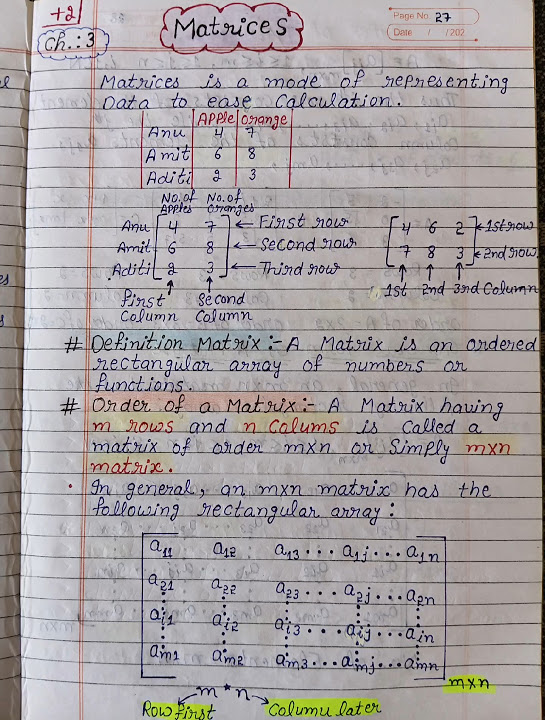 +2
Ch.:3
Matrices
Page No. 27
Date / /202
Matrices is a mode of representing
Data to ease Calculation.
Apple Orange
Anu 4 7
Amit 6 8
Aditi 2 3
No. of Apples No. of Oranges
Anu 4 7 ← First row
Amit 6 8 ← Second row
Aditi 2 3 ← Third row
First Column Second Column
4 6 2 ← 1st row
7 8 3 ← 2nd row
1st 2nd 3rd Column
# Definition Matrix :- A Matrix is an ordered
rectangular array of numbers or
functions.
# Order of a Matrix :- A Matrix having
m rows and n Colums is Called a
matrix of order m×n or Simply m×n
matrix.
• In general, an m×n matrix has the
following rectangular array :
a11 a12 a13 ... a1j ... a1n
a21 a22 a23 ... a2j ... a2n
ai1 ai2 ai3 ... aij ... ain
am1 am2 am3 ... amj ... amn
m×n
m * n
Row first Columu later